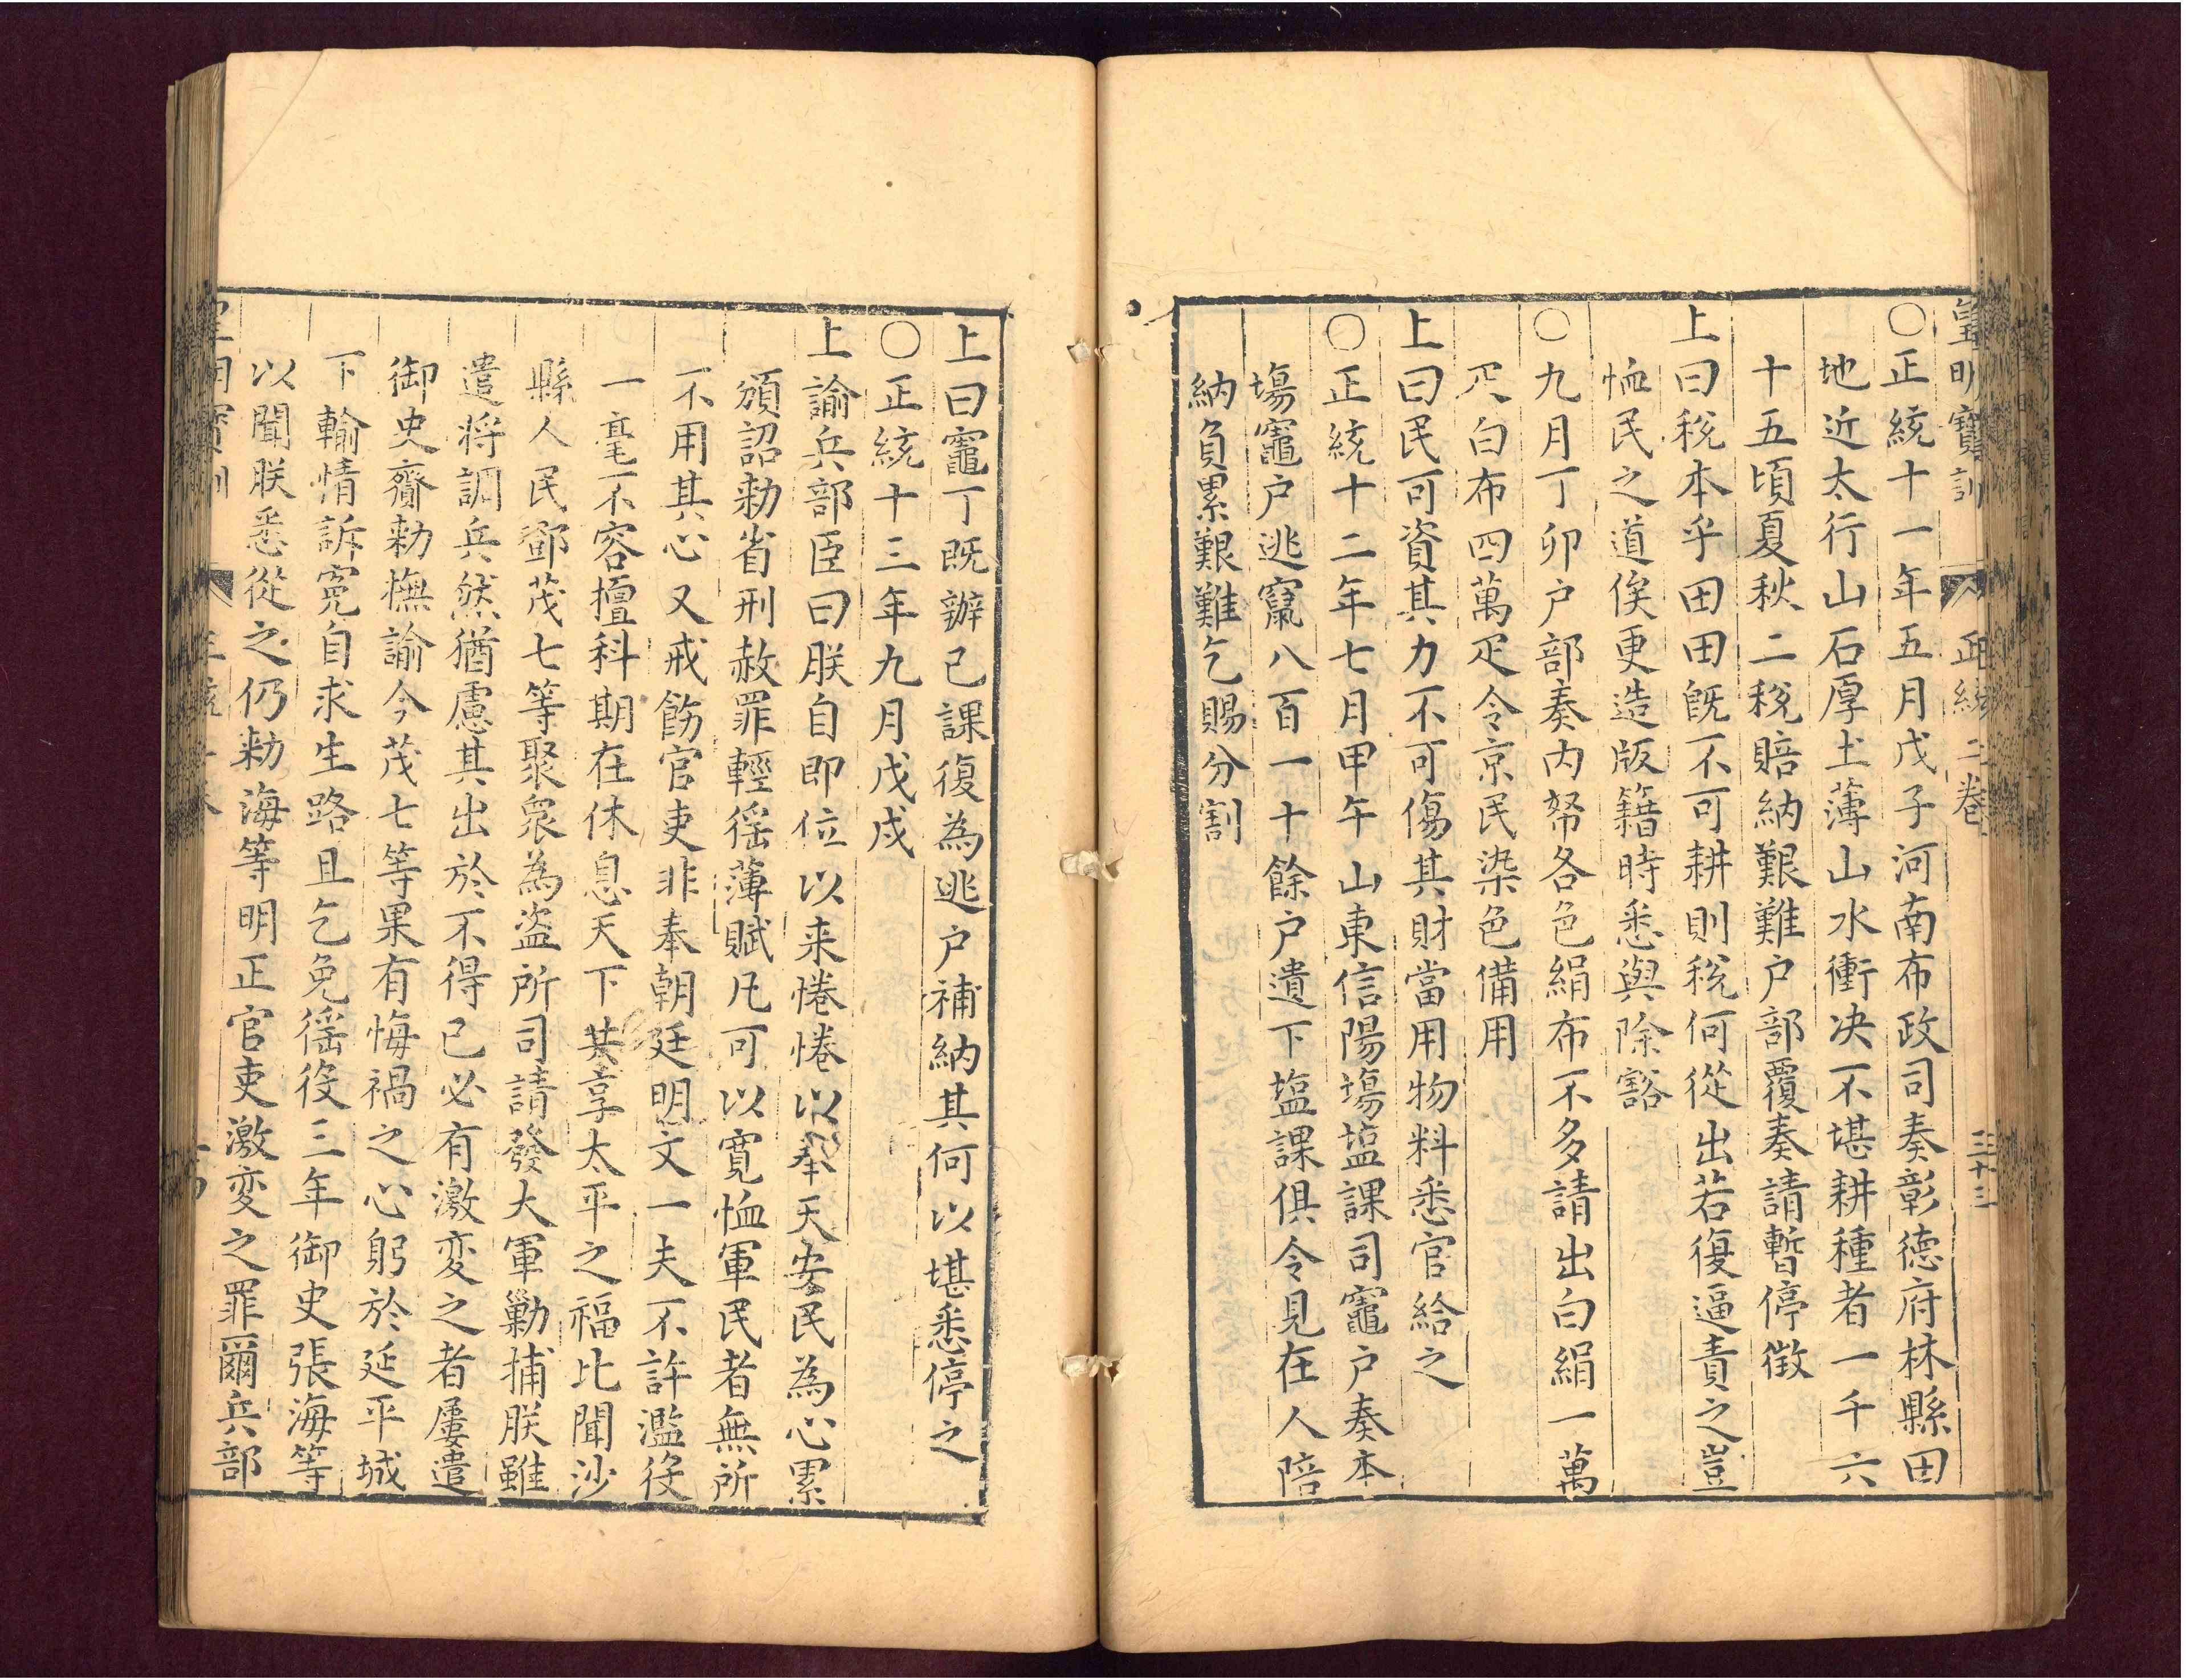 皇明寶訓　正統二卷　三十三
○正統十一年五月戊子河南布政司奏彰德府林縣田
地近太行山石厚土薄山水衝决不堪耕種者一千六
十五頃夏秋二稅賠納艱難户部覆奏請暫停徵
上曰稅本乎田田既不可耕則稅何從出若復逼責之豈
恤民之道俟更造版籍時悉與除豁
○九月丁卯户部奏内帑各色絹布不多請出白絹一萬
疋白布四萬疋令京民染色備用
上曰民可資其力不可傷其財當用物料悉官給之
○正統十二年七月甲午山東信陽塲塩課司竈户奏本
塲竈户逃竄八百一十餘户遺下塩課俱令見在人陪
納負累艱難乞賜分割
上曰竈丁既辦已課復為逃户補納其何以堪悉停之
○正統十三年九月戊戌
上諭兵部臣曰朕自即位以来惓惓以奉天安民為心累
頒詔勑省刑赦罪輕徭薄賦凡可以寛恤軍民者無所
不用其心又戒飭官吏非奉朝廷明文一夫不許濫役
一毫不容擅科期在休息天下共享太平之福比聞沙
縣人民鄧茂七等聚衆為盗所司請發大軍勦捕朕雖
遣将調兵然猶慮其出於不得已必有激変之者屢遣
御史齎勑撫諭今茂七等果有悔禍之心躬於延平城
下輸情訴寃自求生路且乞免徭役三年御史張海等
以聞朕悉從之仍勑海等明正官吏激変之罪爾兵部